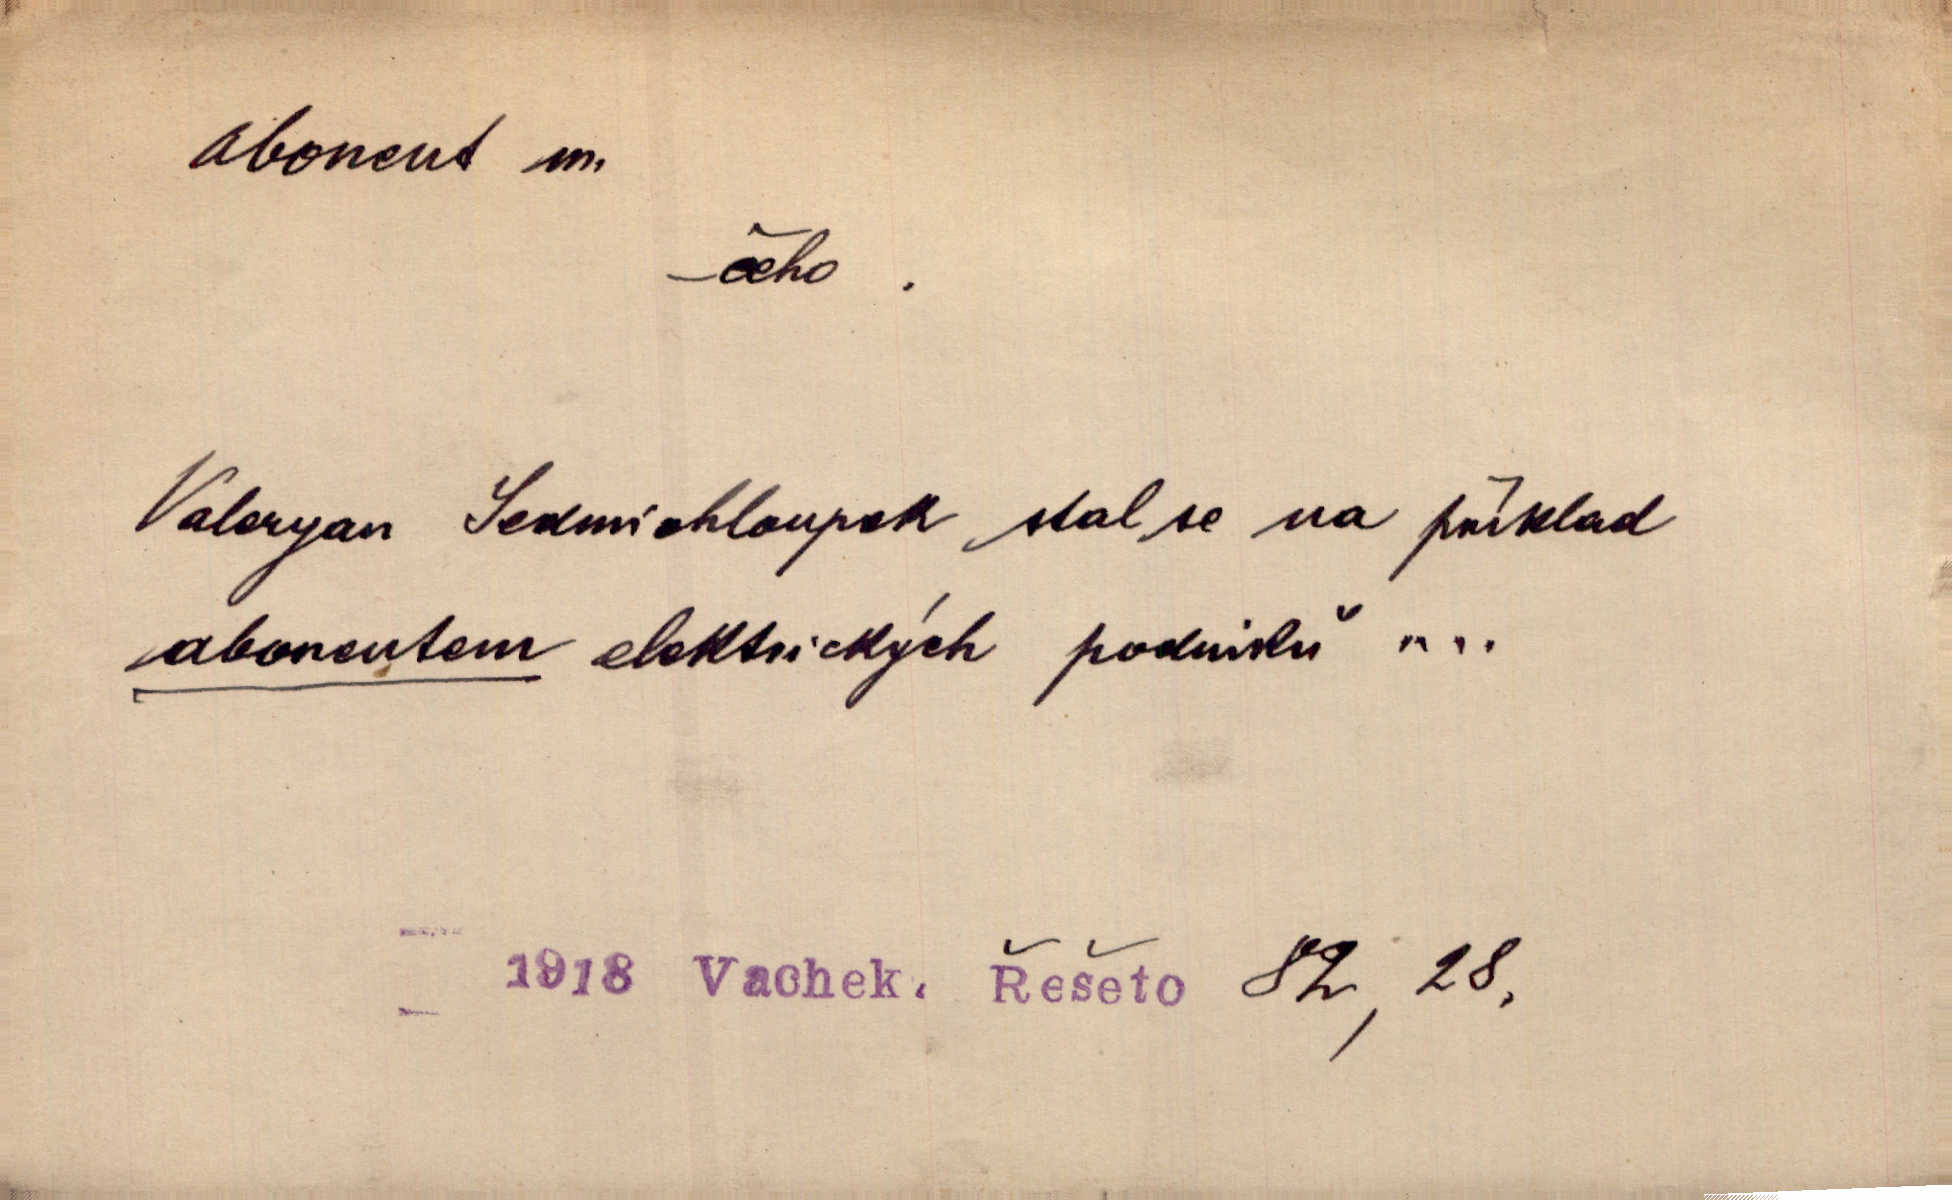 abonent m.
- čeho .
Valeryan Sedmichloupek stal se na příklad
abonentem elektrických podniků ...
1918 Vachek. Řešeto 82, 28.